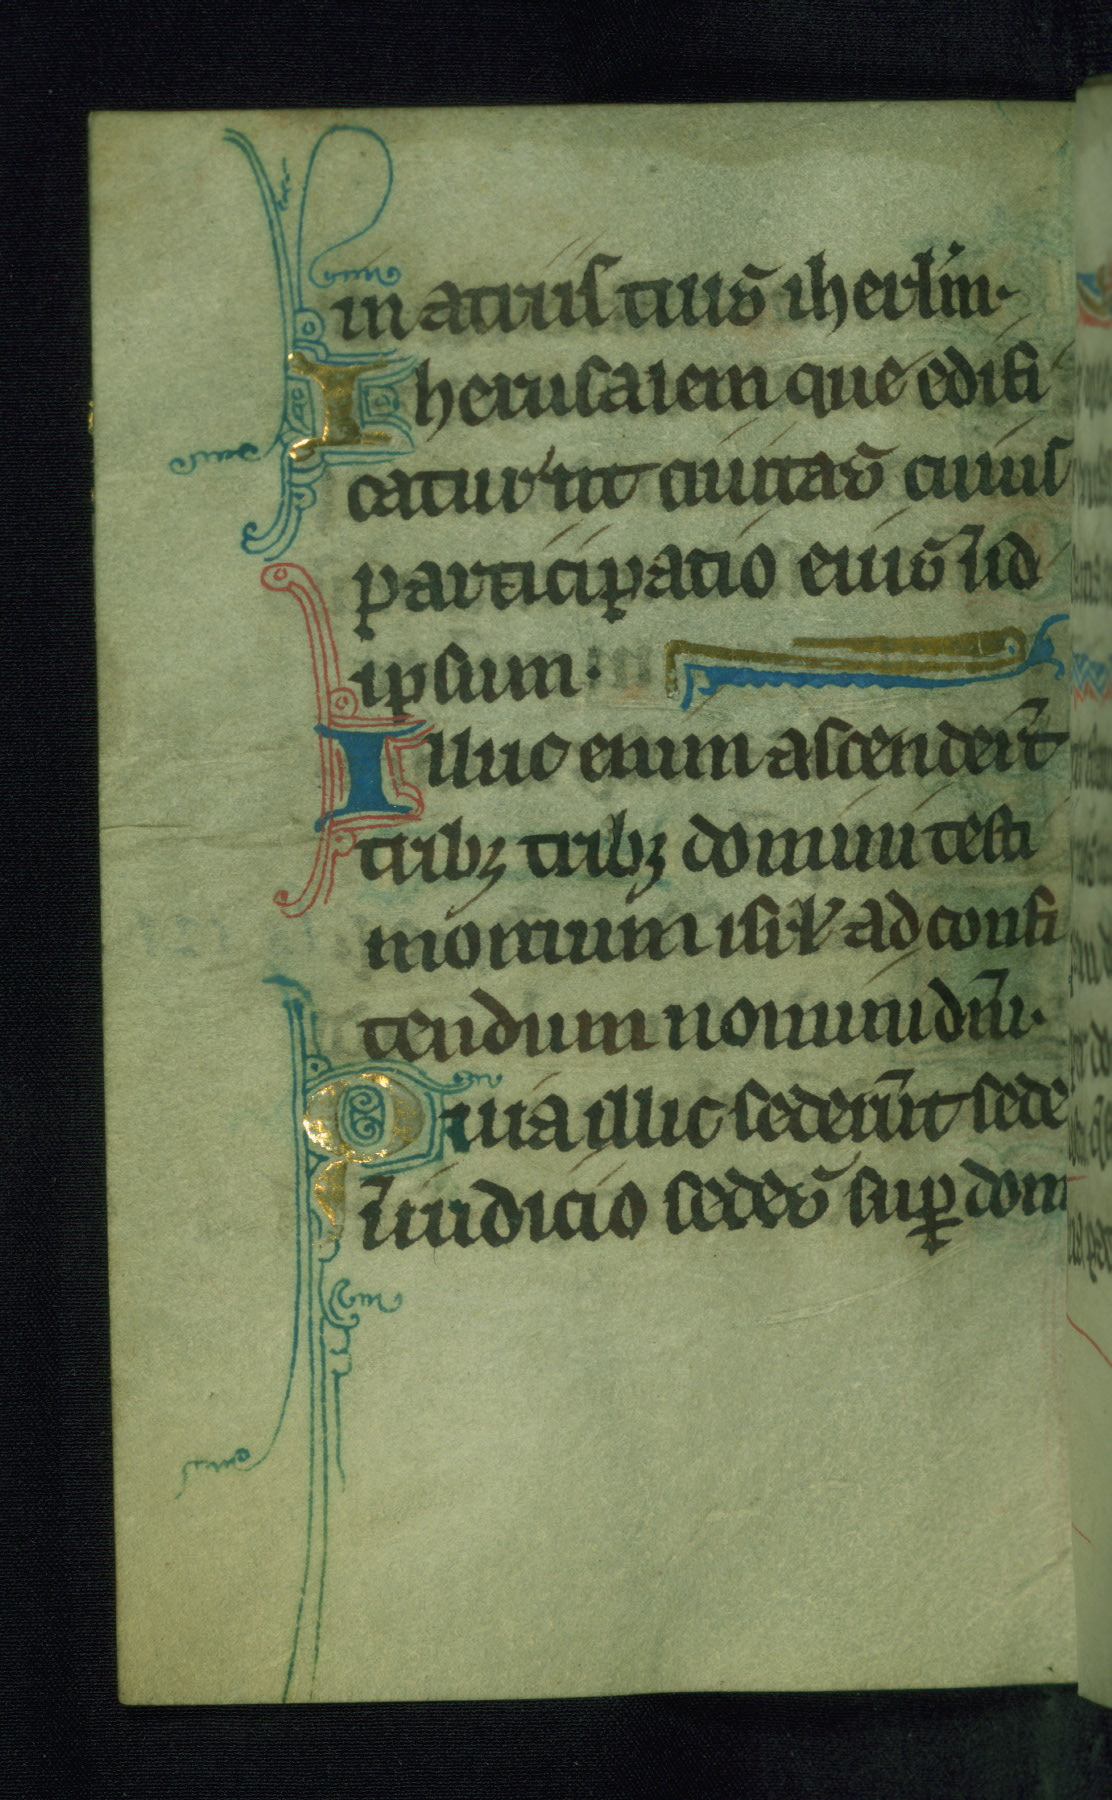 in atriis tuis iherl̃m.
Iherusalem que edifi
catur ut ciuitas cuius
participatio eius ĩ id
ipsum.
Illuc enim ascender̃t
tribꝫ tribꝫ domini testi
monium isr̃l ad confi
tendum nomini dñi.
Quia illic seder̃ut sede
ĩ iudicio sedes suꝑ dom